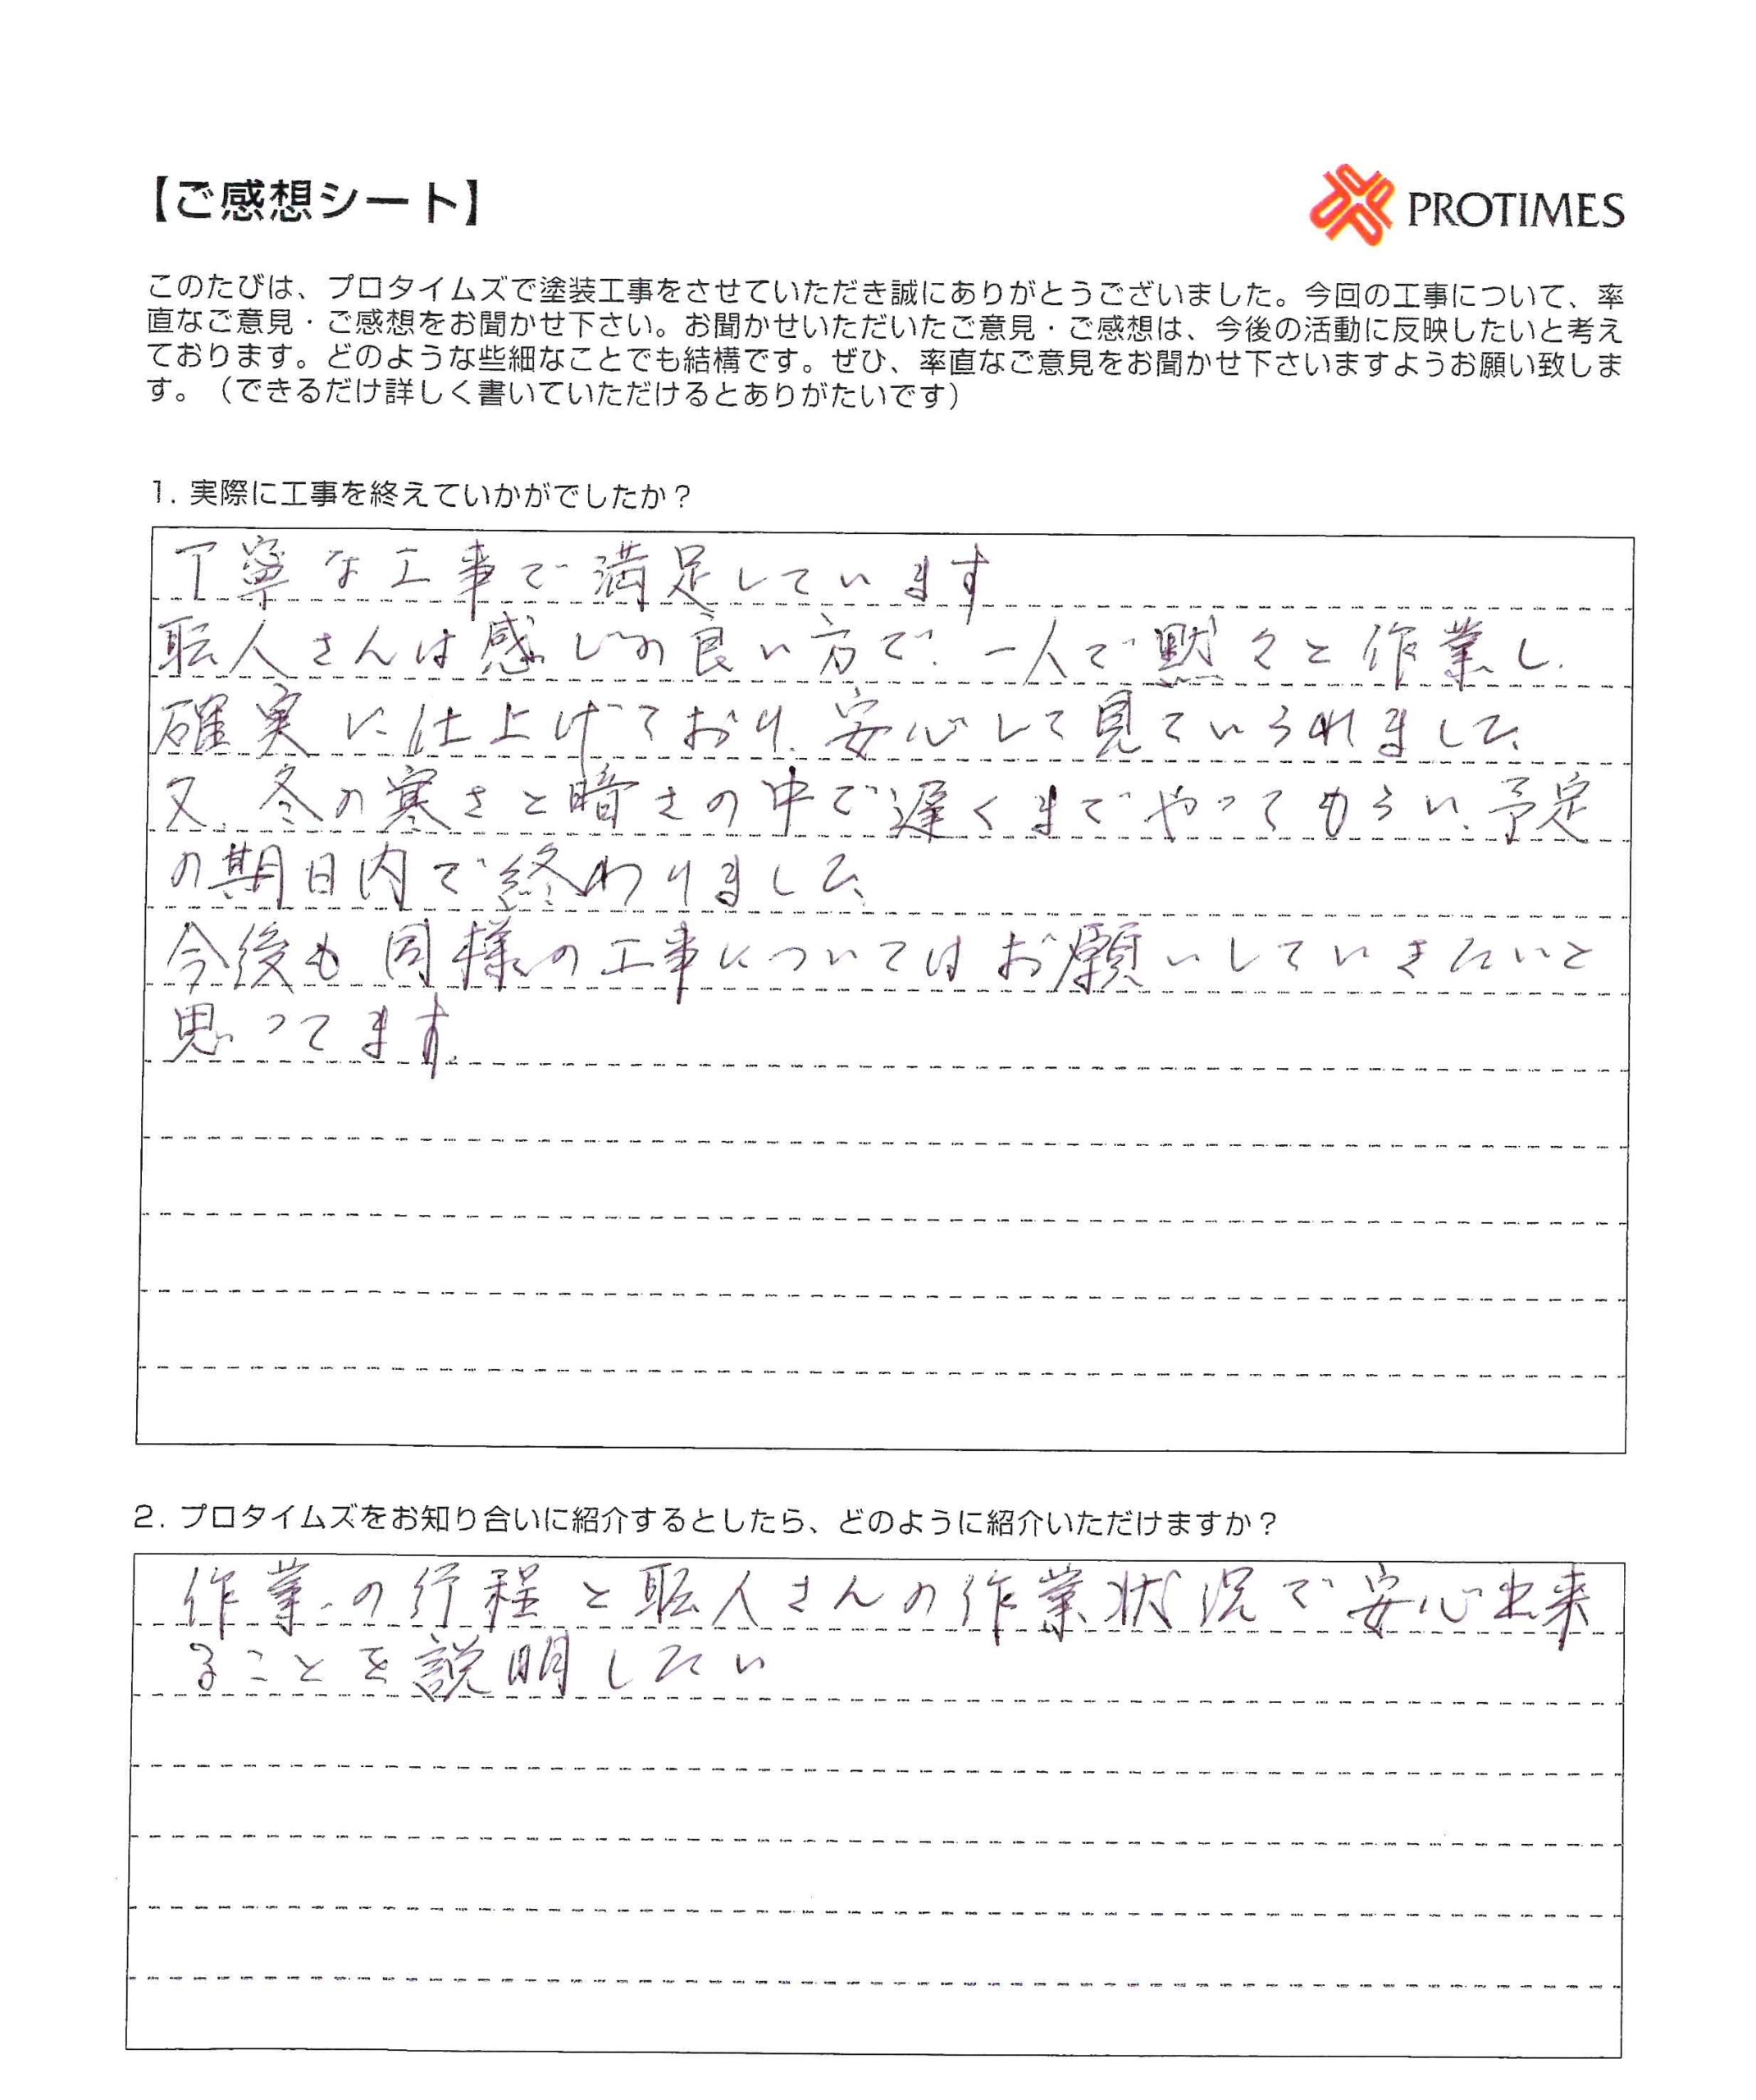 【ご感想シート】
PROTIMES
このたびは、プロタイムズで塗装工事をさせていただき誠にありがとうございました。今回の工事について、率
直なご意見・ご感想をお聞かせ下さい。お聞かせいただいたご意見・ご感想は、今後の活動に反映したいと考え
ております。どのような些細なことでも結構です。ぜひ、率直なご意見をお聞かせ下さいますようお願い致しま
す。（できるだけ詳しく書いていただけるとありがたいです）
1. 実際に工事を終えていかがでしたか？
丁寧な工事で満足しています
職人さんは感じの良い方で、一人で黙々と作業し、
確実に仕上げており、安心して見ていられました。
又、冬の寒さと暗さの中で遅くまでやってもらい、予定
の期日内で終わりました。
今後も同様の工事についてはお願いしていきたいと
思ってます。
2. プロタイムズをお知り合いに紹介するとしたら、どのように紹介いただけますか？
作業の行程と職人さんの作業状況で安心出来
ることを説明したい